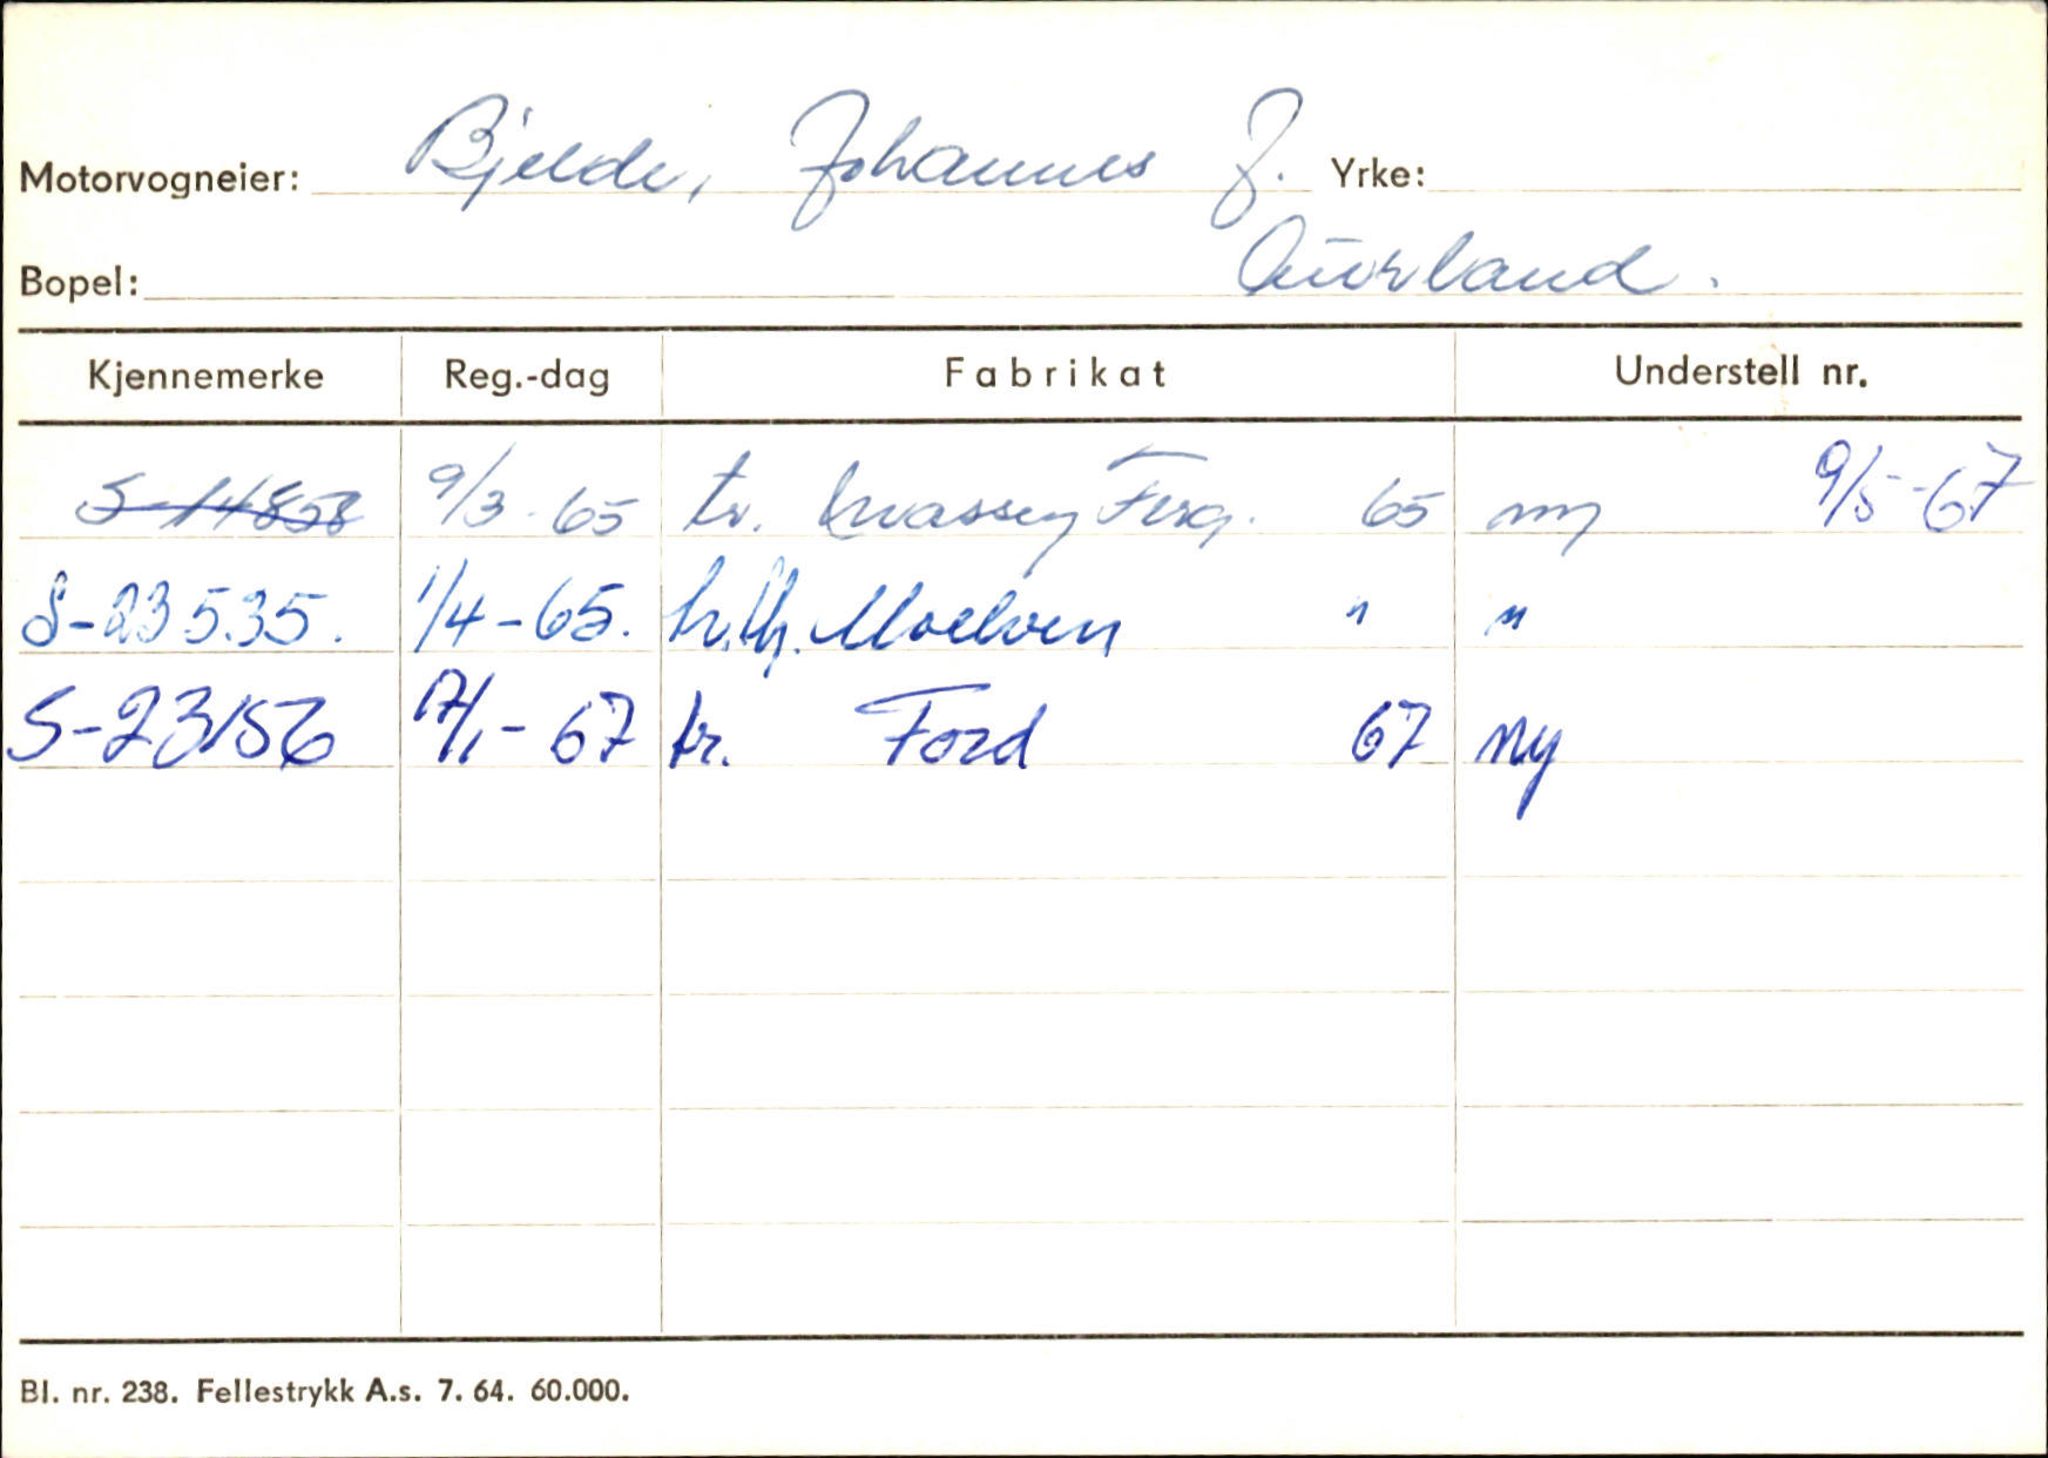 Motorvogneier: Bjelde, Johannes J. Yrke:
Bopel: Aurland.
Kjennemerke Reg.-dag Fabrikat Understell nr.
S-14858 9/3-65 tr. Massey Ferg. 65 ny 9/5-67
S-23535. 1/4-65. Moelven " "
S-23156 17/1-67 tr. Ford 67 ny
Bl. nr. 238. Fellestrykk A.s. 7. 64. 60.000.